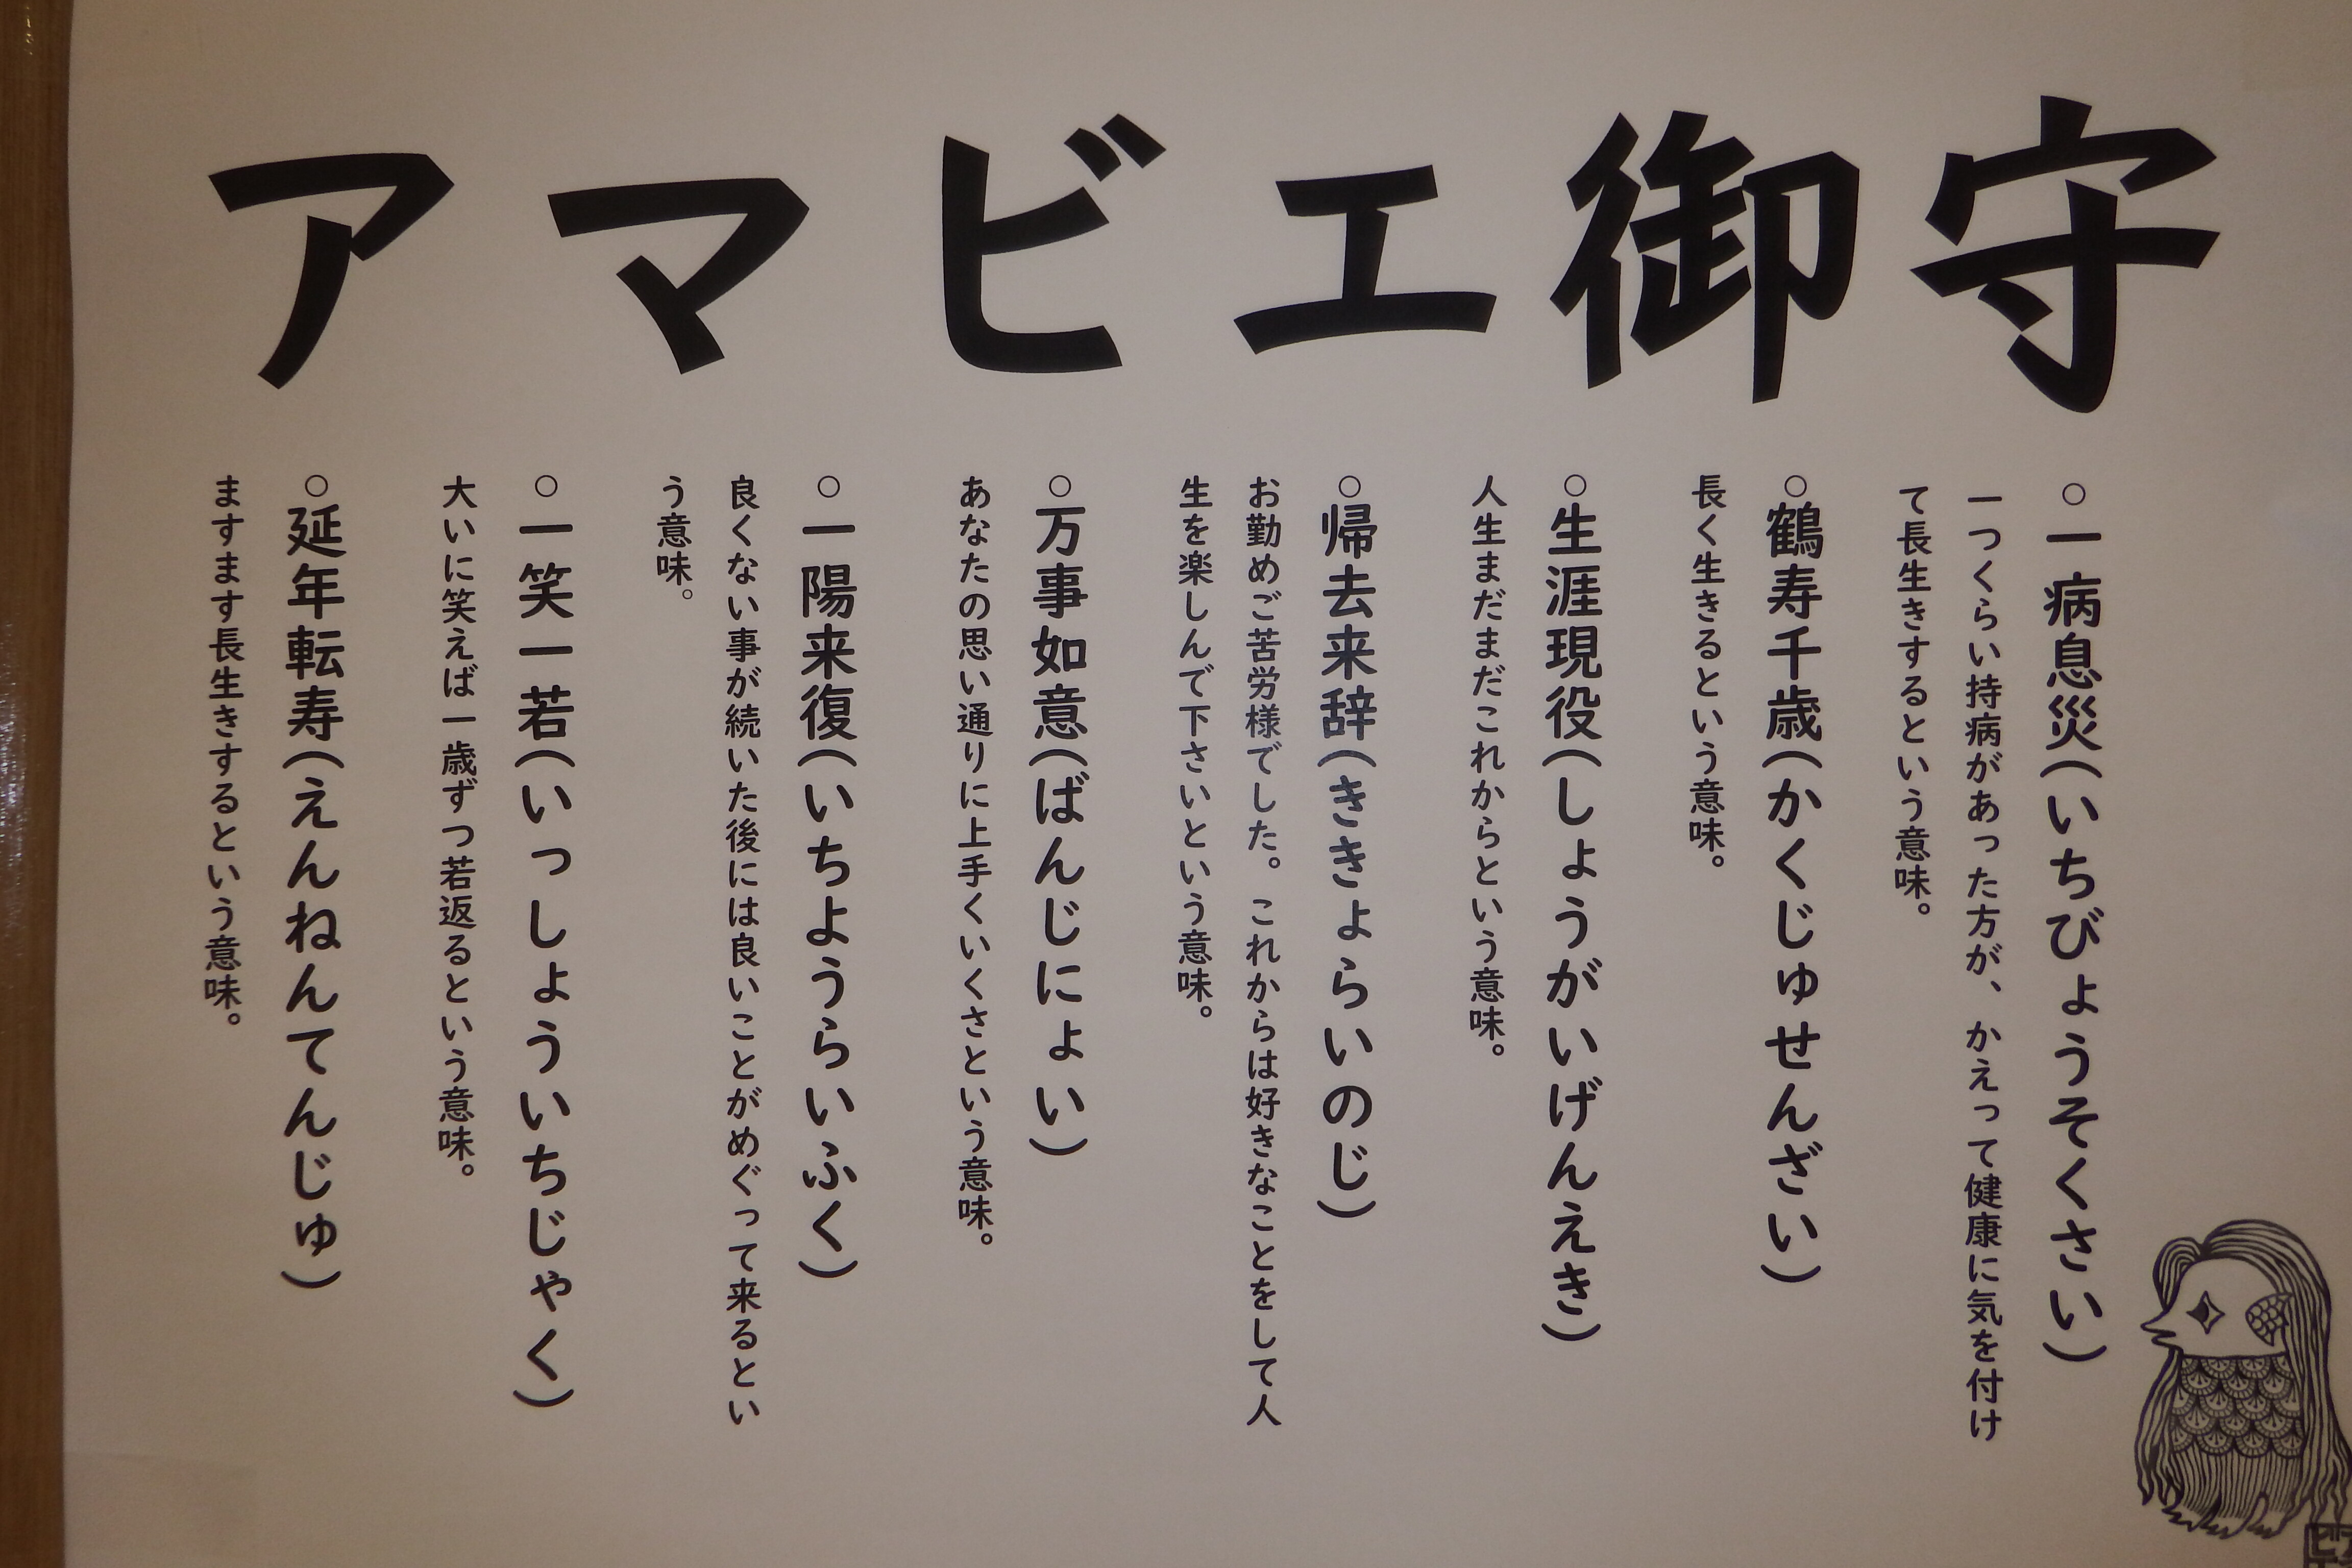 アマビエ御守
○一病息災(いちびょうそくさい)
一つくらい持病があった方が、かえって健康に気を付け
て長生きするという意味。
○鶴寿千歳(かくじゅせんざい)
長く生きるという意味。
○生涯現役(しょうがいげんえき)
人生まだまだこれからという意味。
○帰去来辞(ききょらいのじ)
お勤めご苦労様でした。これからは好きなことをして人
生を楽しんで下さいという意味。
○万事如意(ばんじにょい)
あなたの思い通りに上手くいくさという意味。
○一陽来復(いちようらいふく)
良くない事が続いた後には良いことがめぐって来るとい
う意味。
○一笑一若(いっしょういちじゃく)
大いに笑えば一歳ずつ若返るという意味。
○延年転寿(えんねんてんじゅ)
ますます長生きするという意味。